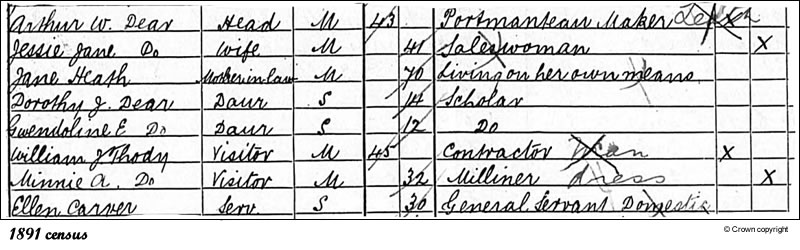 Arthur W. Dear Head M 43 Portmanteau Maker
Jessie Jane Do Wife M 41 Saleswoman X
Jane Heath Mother in law M 70 Living on her own means
Dorothy J. Dear Daur S 14 Scholar
Gwendoline E Do Daur S 12 Do
William J Thody Visitor M 45 Contractor X
Minnie A. Do Visitor M 32 Milliner dress X
Ellen Carver Serv. S 30 General Servant Domestic
1891 census
© Crown copyright